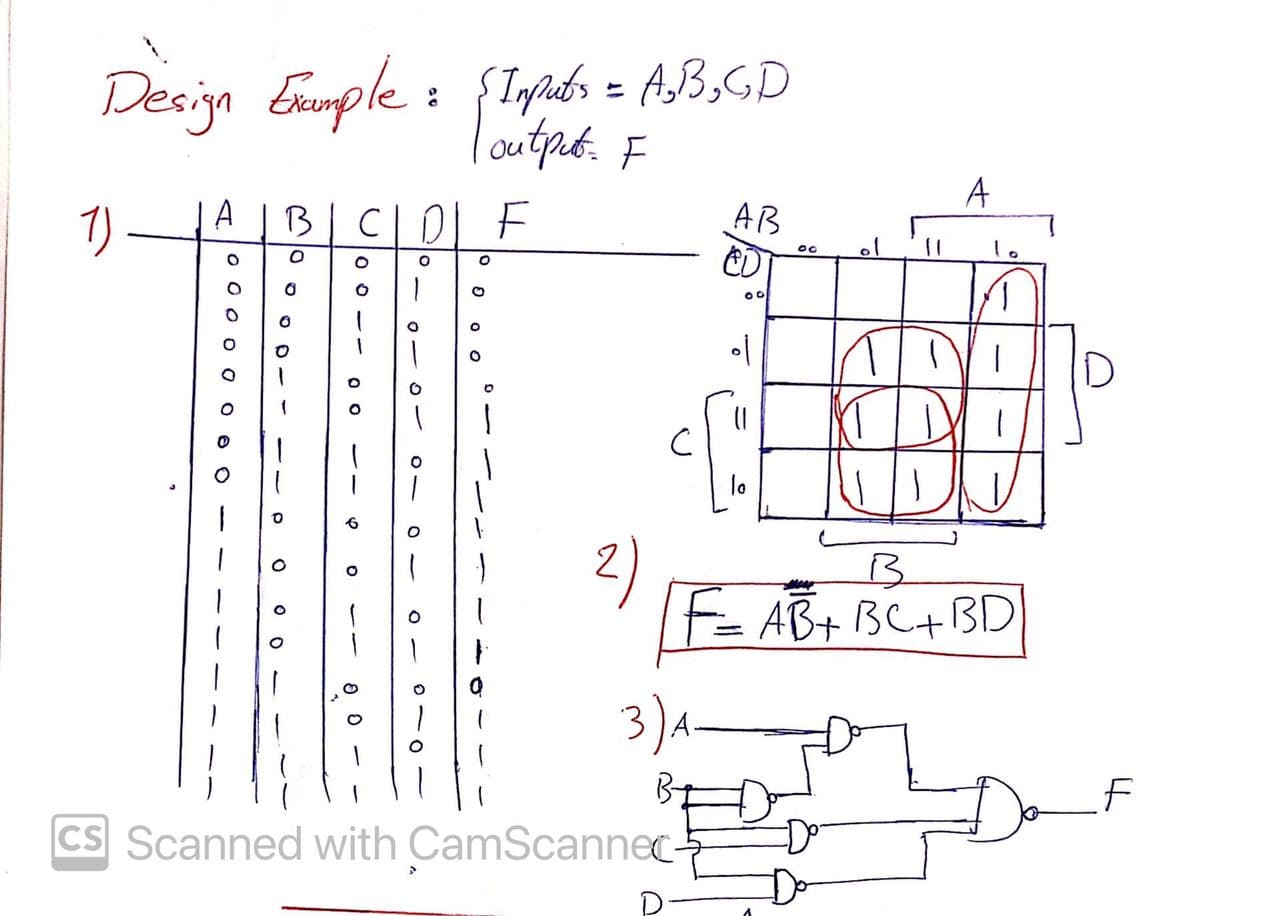 Design Example : { Inputs = A,B,C,D
output = F
1) A | B | C | D | F
0 0 0 0 0
0 0 0 1 0
0 0 1 0 0
0 0 1 1 0
0 1 0 0 0
0 1 0 1 1
0 1 1 0 1
0 1 1 1 1
1 0 0 0 1
1 0 0 1 1
1 0 1 0 1
1 0 1 1 1
1 1 0 0 0
1 1 0 1 1
1 1 1 0 1
1 1 1 1 1
A
AB
CD 00 01 11 10
00 1
01 1 1 1 D
C 11 1 1 1
10 1 1 1
B
2) F = AB̅ + BC + BD
3) A
B F
C
D
CS Scanned with CamScanner